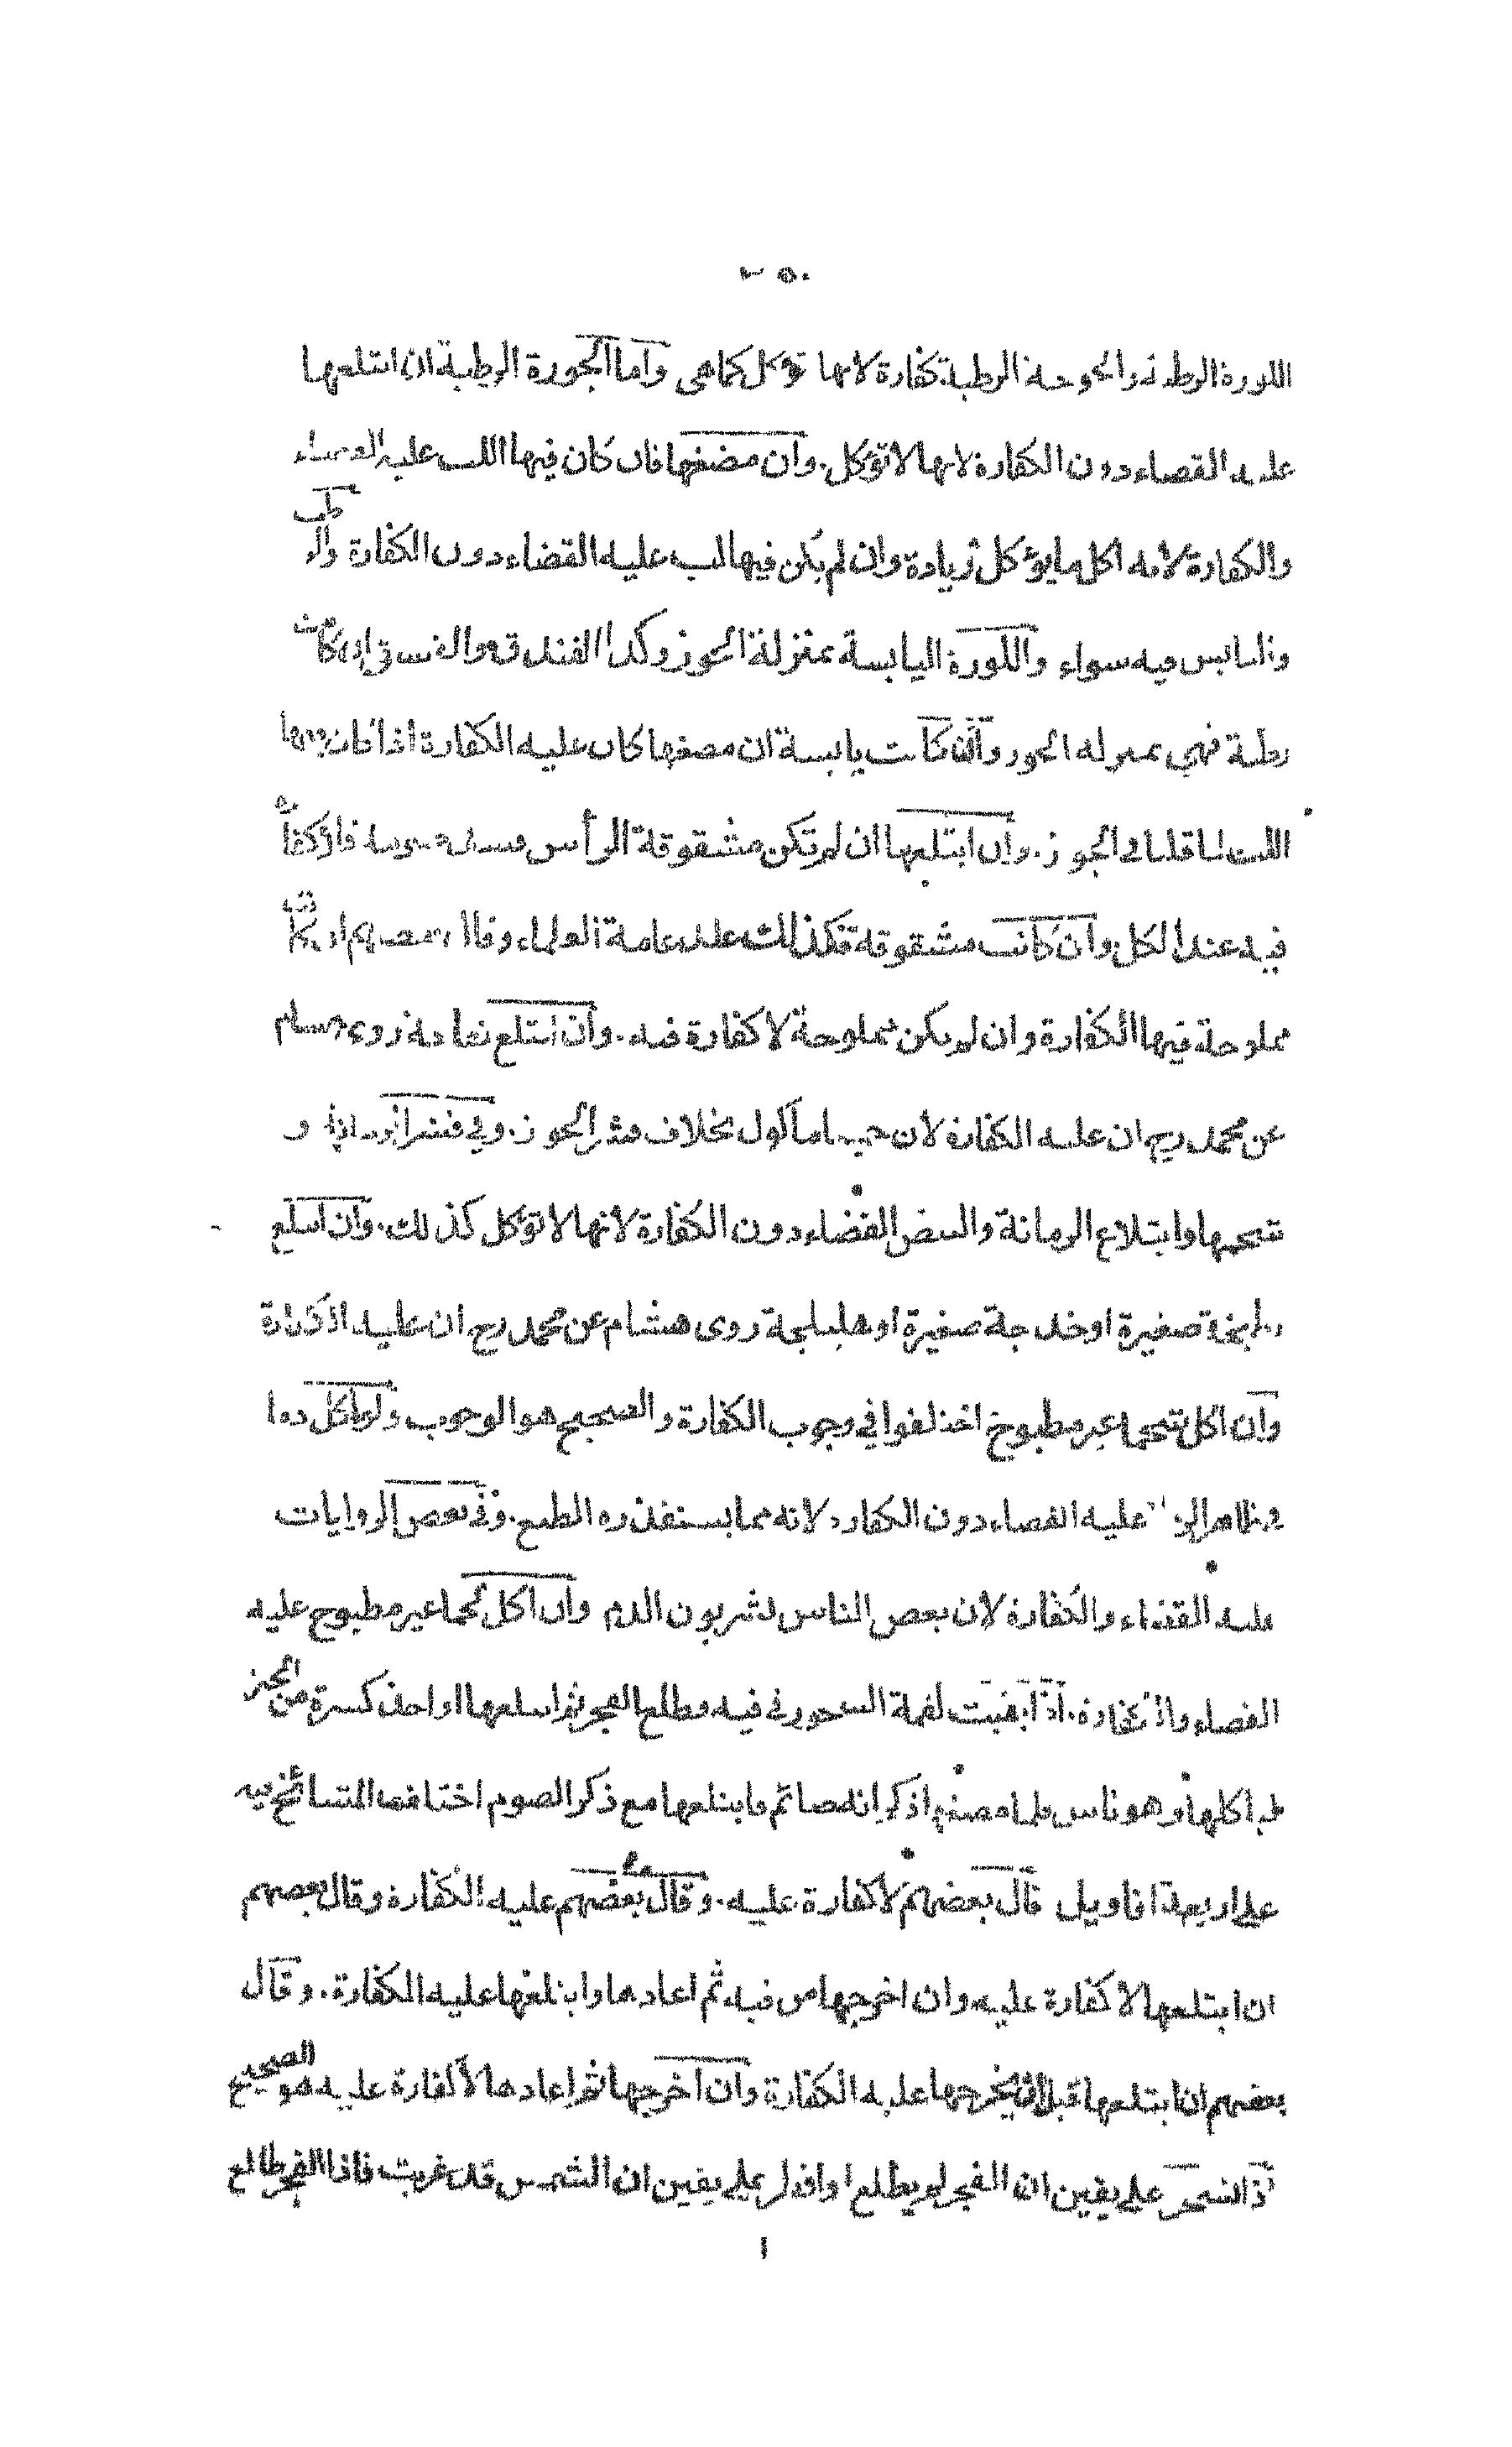 ٢٥٠
اللوزة الرطبة والخوخة الرطبة كفارة لانها تؤكل كما هي واما الجوزة الرطبة ان ابتلعها
عليه القضاء دون الكفارة لانها لا تؤكل. وان مضغها فان كان فيها اللب عليه القضاء
والكفارة لانه اكل ما يؤكل وزيادة وان لم يكن فيها لب عليه القضاء دون الكفارة والرطب
واليابس فيه سواء واللوزة اليابسة بمنزلة الجوز وكذا الفندق والفستق ان كانت
رطبة فهي بمنزلة الجوز وان كانت يابسة ان مضغها كان عليه الكفارة اذا كان فيها
اللب لما قلنا في الجوز. وان ابتلعها ان لم تكن مشقوقة الرأس فلا كفارة
فيه عند الكل وان كانت مشقوقة فكذلك عند عامة العلماء وقال بعضهم ان كانت
مملوحة فيها الكفارة وان لم يكن مملوحة لا كفارة فيه. وان ابتلع تفاحة روى هشام
عن محمد رح ان عليه الكفارة لان مأكول بخلاف قشر الجوز. وفي قشر
شحمها وابتلاع الرمانة والبيض القضاء دون الكفارة لانها لا تؤكل كذلك. وان ابتلع
بطيخة صغيرة او خدجة صغيرة او هليلجة روى هشام عن محمد رح ان عليه الكفارة
وان اكل شحما غير مطبوخ اختلفوا في وجوب الكفارة والصحيح هو الوجوب ولو اكل دما
في ظاهر عليه القضاء دون الكفارة لانه مما يستقذره الطبع. وفي بعض الروايات
عليه القضاء والكفارة لان بعض الناس يشربون الدم وان اكل لحما غير مطبوخ عليه
القضاء والكفارة. اذا بقيت لقمة السحور في فيه وطلع الفجر ثم ابتلعها او اخذ كسرة من الخبز
ليأكلها وهو ناس فلما مضغها ذكر انه صائم فابتلعها مع ذكر الصوم اختلف المشائخ فيه
على اربعة اقاويل قال بعضهم لا كفارة عليه. وقال بعضهم عليه الكفارة وقال بعضهم
ان ابتلعها لا كفارة عليه وان اخرجها من فيه ثم اعادها وابتلعها عليه الكفارة. وقال
بعضهم ان ابتلعها قبل ان يخرجها عليه الكفارة وان اخرجها ثم اعادها لا كفارة عليه هو الصحيح
اذا تسحر على يقين ان الفجر لم يطلع او افطر على يقين ان الشمس قد غربت فاذا الفجر طالع